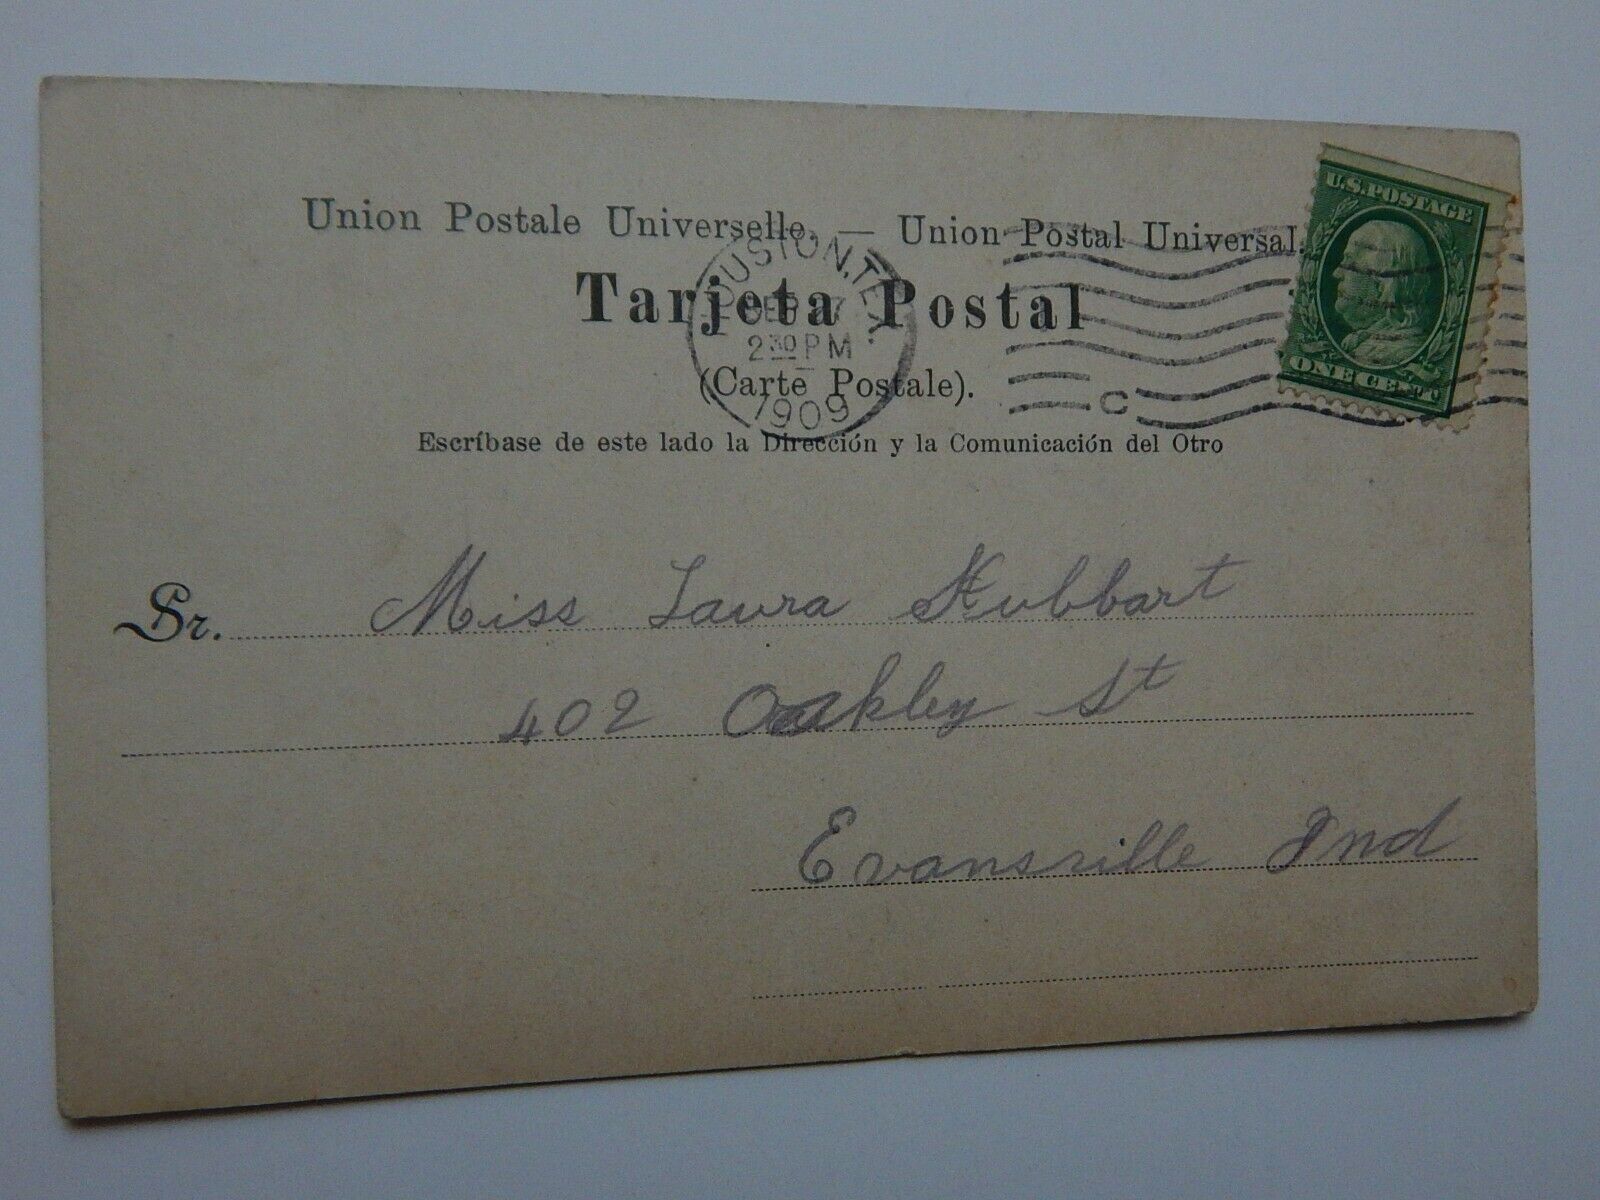 Union Postale Universelle. — Union Postal Universal.
U.S. POSTAGE
Tarjeta Postal
HOUSTON, TEX.
7
2 30 PM
1909
C
ONE CENT
(Carte Postale).
Escríbase de este lado la Dirección y la Comunicación del Otro
Sr. Miss Laura Hubbart
402 Oakley St
Evansville Ind